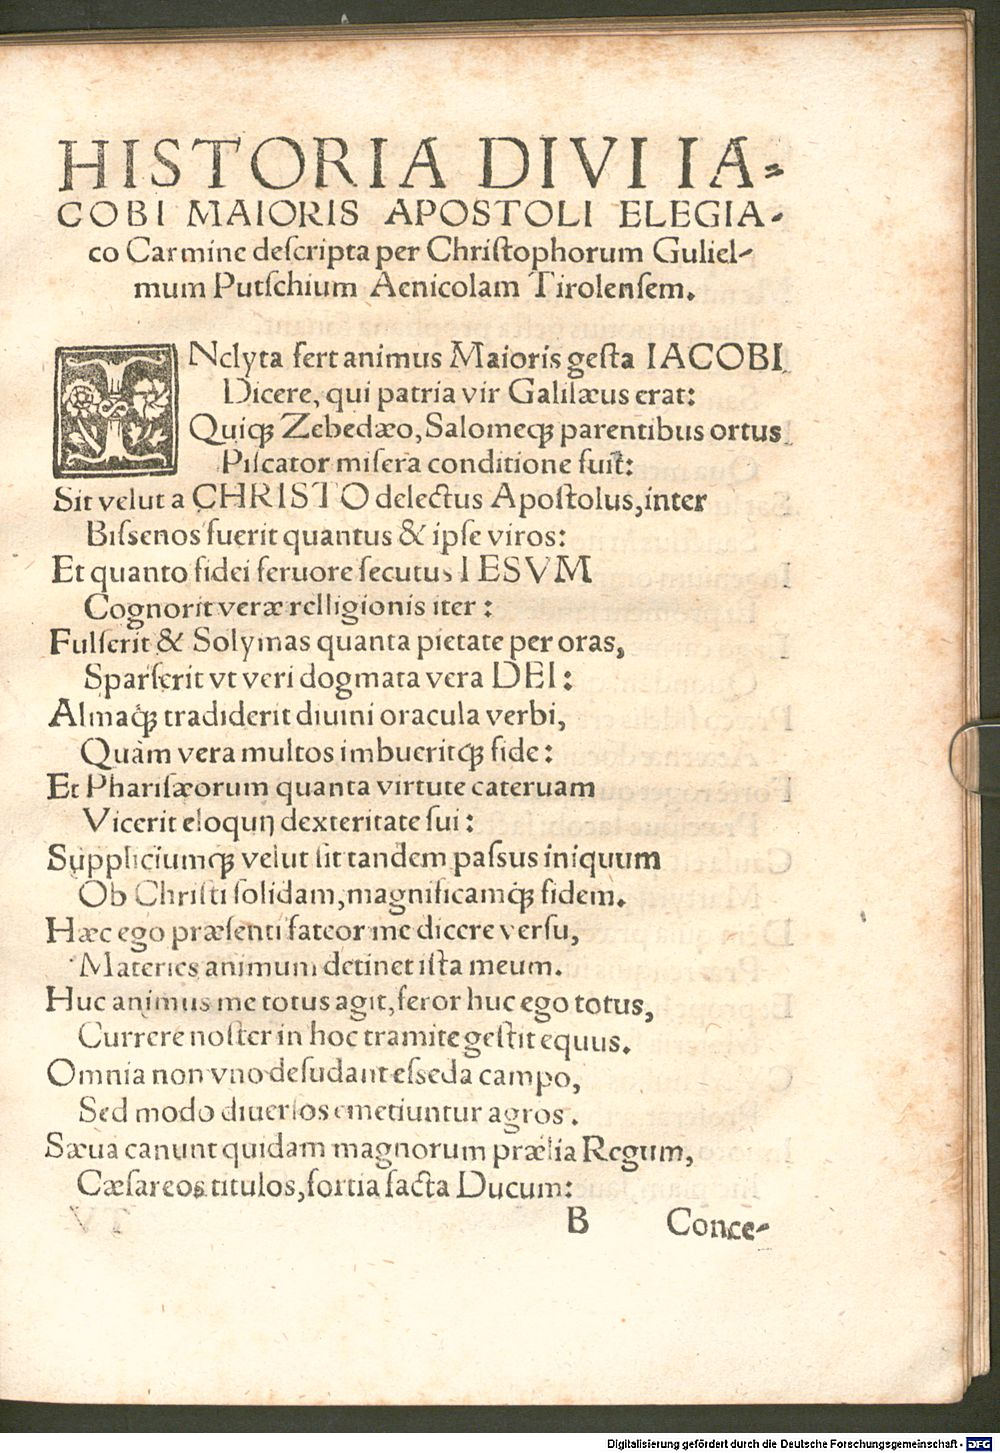 HISTORIA DIVI IA-
COBI MAIORIS APOSTOLI ELEGIA-
co Carmine deſcripta per Chriſtophorum Guliel-
mum Putſchium Aenicolam Tirolenſem.
INclyta fert animus Maioris geſta IACOBI
Dicere, qui patria vir Galilæus erat:
Quiqꝫ Zebedæo, Salomeqꝫ parentibus ortus
Piſcator miſera conditione fuit:
Sit velut a CHRISTO delectus Apoſtolus, inter
Biſsenos fuerit quantus & ipſe viros:
Et quanto fidei feruore ſecutus IESVM
Cognorit veræ relligionis iter:
Fulſerit & Solymas quanta pietate per oras,
Sparſerit vt veri dogmata vera DEI:
Almaqꝫ tradiderit diuini oracula verbi,
Quàm vera multos imbueritqꝫ fide:
Et Phariſæorum quanta virtute cateruam
Vicerit eloquij dexteritate ſui:
Suppliciumqꝫ velut ſit tandem paſsus iniquum
Ob Chriſti ſolidam, magnificamqꝫ fidem.
Hæc ego præſenti fateor me dicere verſu,
Materies animum detinet iſta meum.
Huc animus me totus agit, feror huc ego totus,
Currere noſter in hoc tramite geſtit equus.
Omnia non vno deſudant eſseda campo,
Sed modo diuerſos emetiuntur agros.
Sæua canunt quidam magnorum prælia Regum,
Cæſareos titulos, fortia facta Ducum:
B Conce-
Digitalisierung gefördert durch die Deutsche Forschungsgemeinschaft - DFG